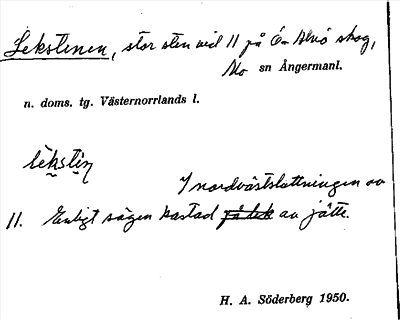 Lekstenen, stor sten vid 11 på Ön Alnö skog,
Mo sn Ångermanl.
n. doms. tg. Västernorrlands l.
lèkstèn
I nordvästsluttningen av
11. Enligt sägen kastad på lek av jätte.
H. A. Söderberg 1950.